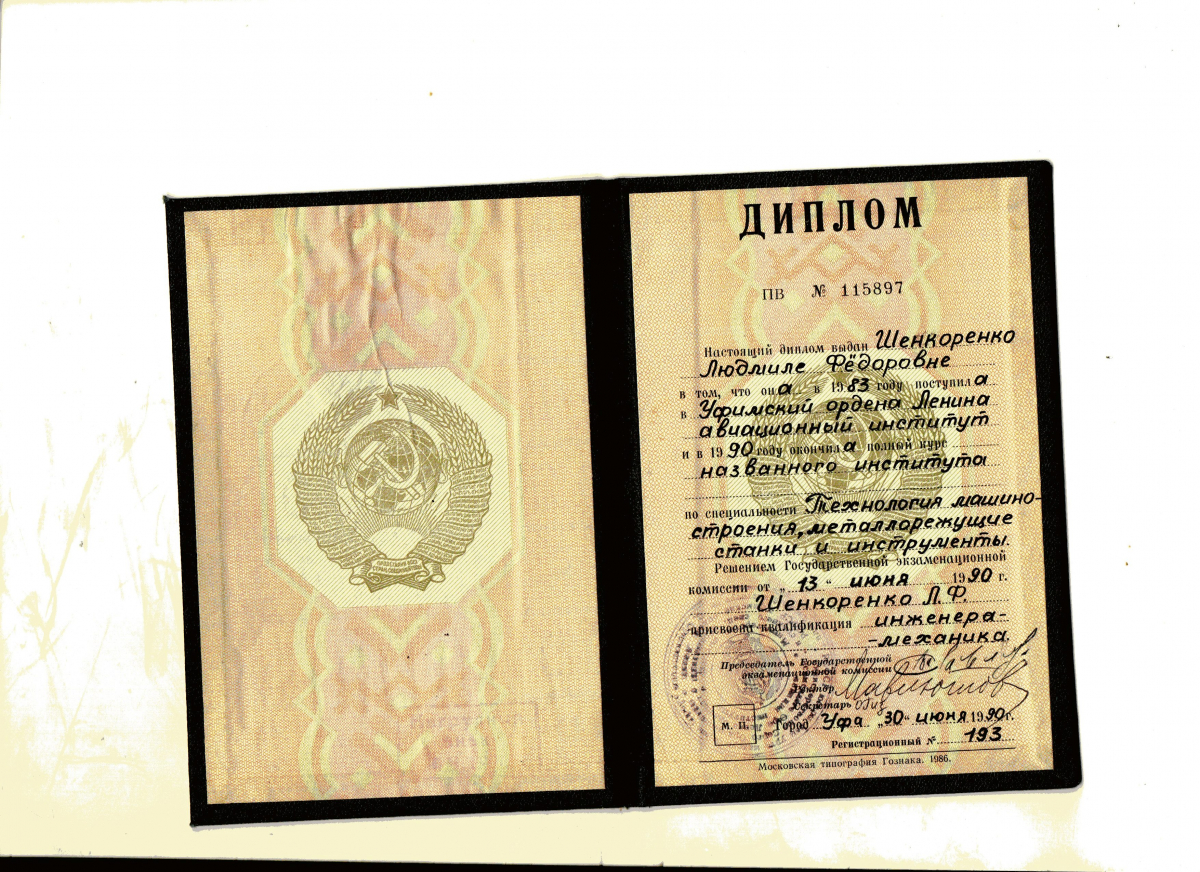 ПРОЛЕТАРИИ ВСЕХ
СТРАН, СОЕДИНЯЙТЕСЬ!
ДИПЛОМ
ПВ № 115897
Настоящий диплом выдан Шенкоренко
Людмиле Фёдоровне
в том, что она в 1983 году поступила
в Уфимский ордена Ленина
авиационный институт
и в 1990 году окончила полный курс
названного института
по специальности Технология машино-
строения, металлорежущие
станки и инструменты.
Решением Государственной экзаменационной
комиссии от „13“ июня 1990 г.
Шенкоренко Л.Ф.
присвоена квалификация инженера-
-механика.
Председатель Государственной
экзаменационной комиссии
Ректор
Секретарь
М. П. Город Уфа „30“ июня 1990г.
Регистрационный № 193
Московская типография Гознака. 1986.